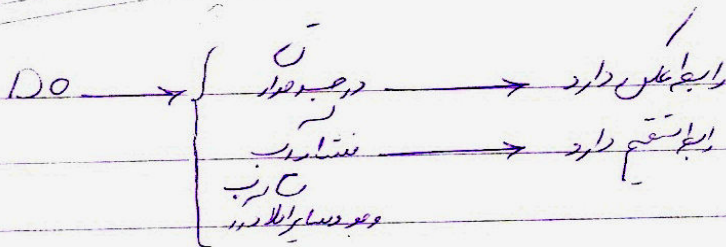 DO → { درجه حرارت → رابطه عکس دارد
فشار آب → رابطه مستقیم دارد
وجود سایر املاح در آب